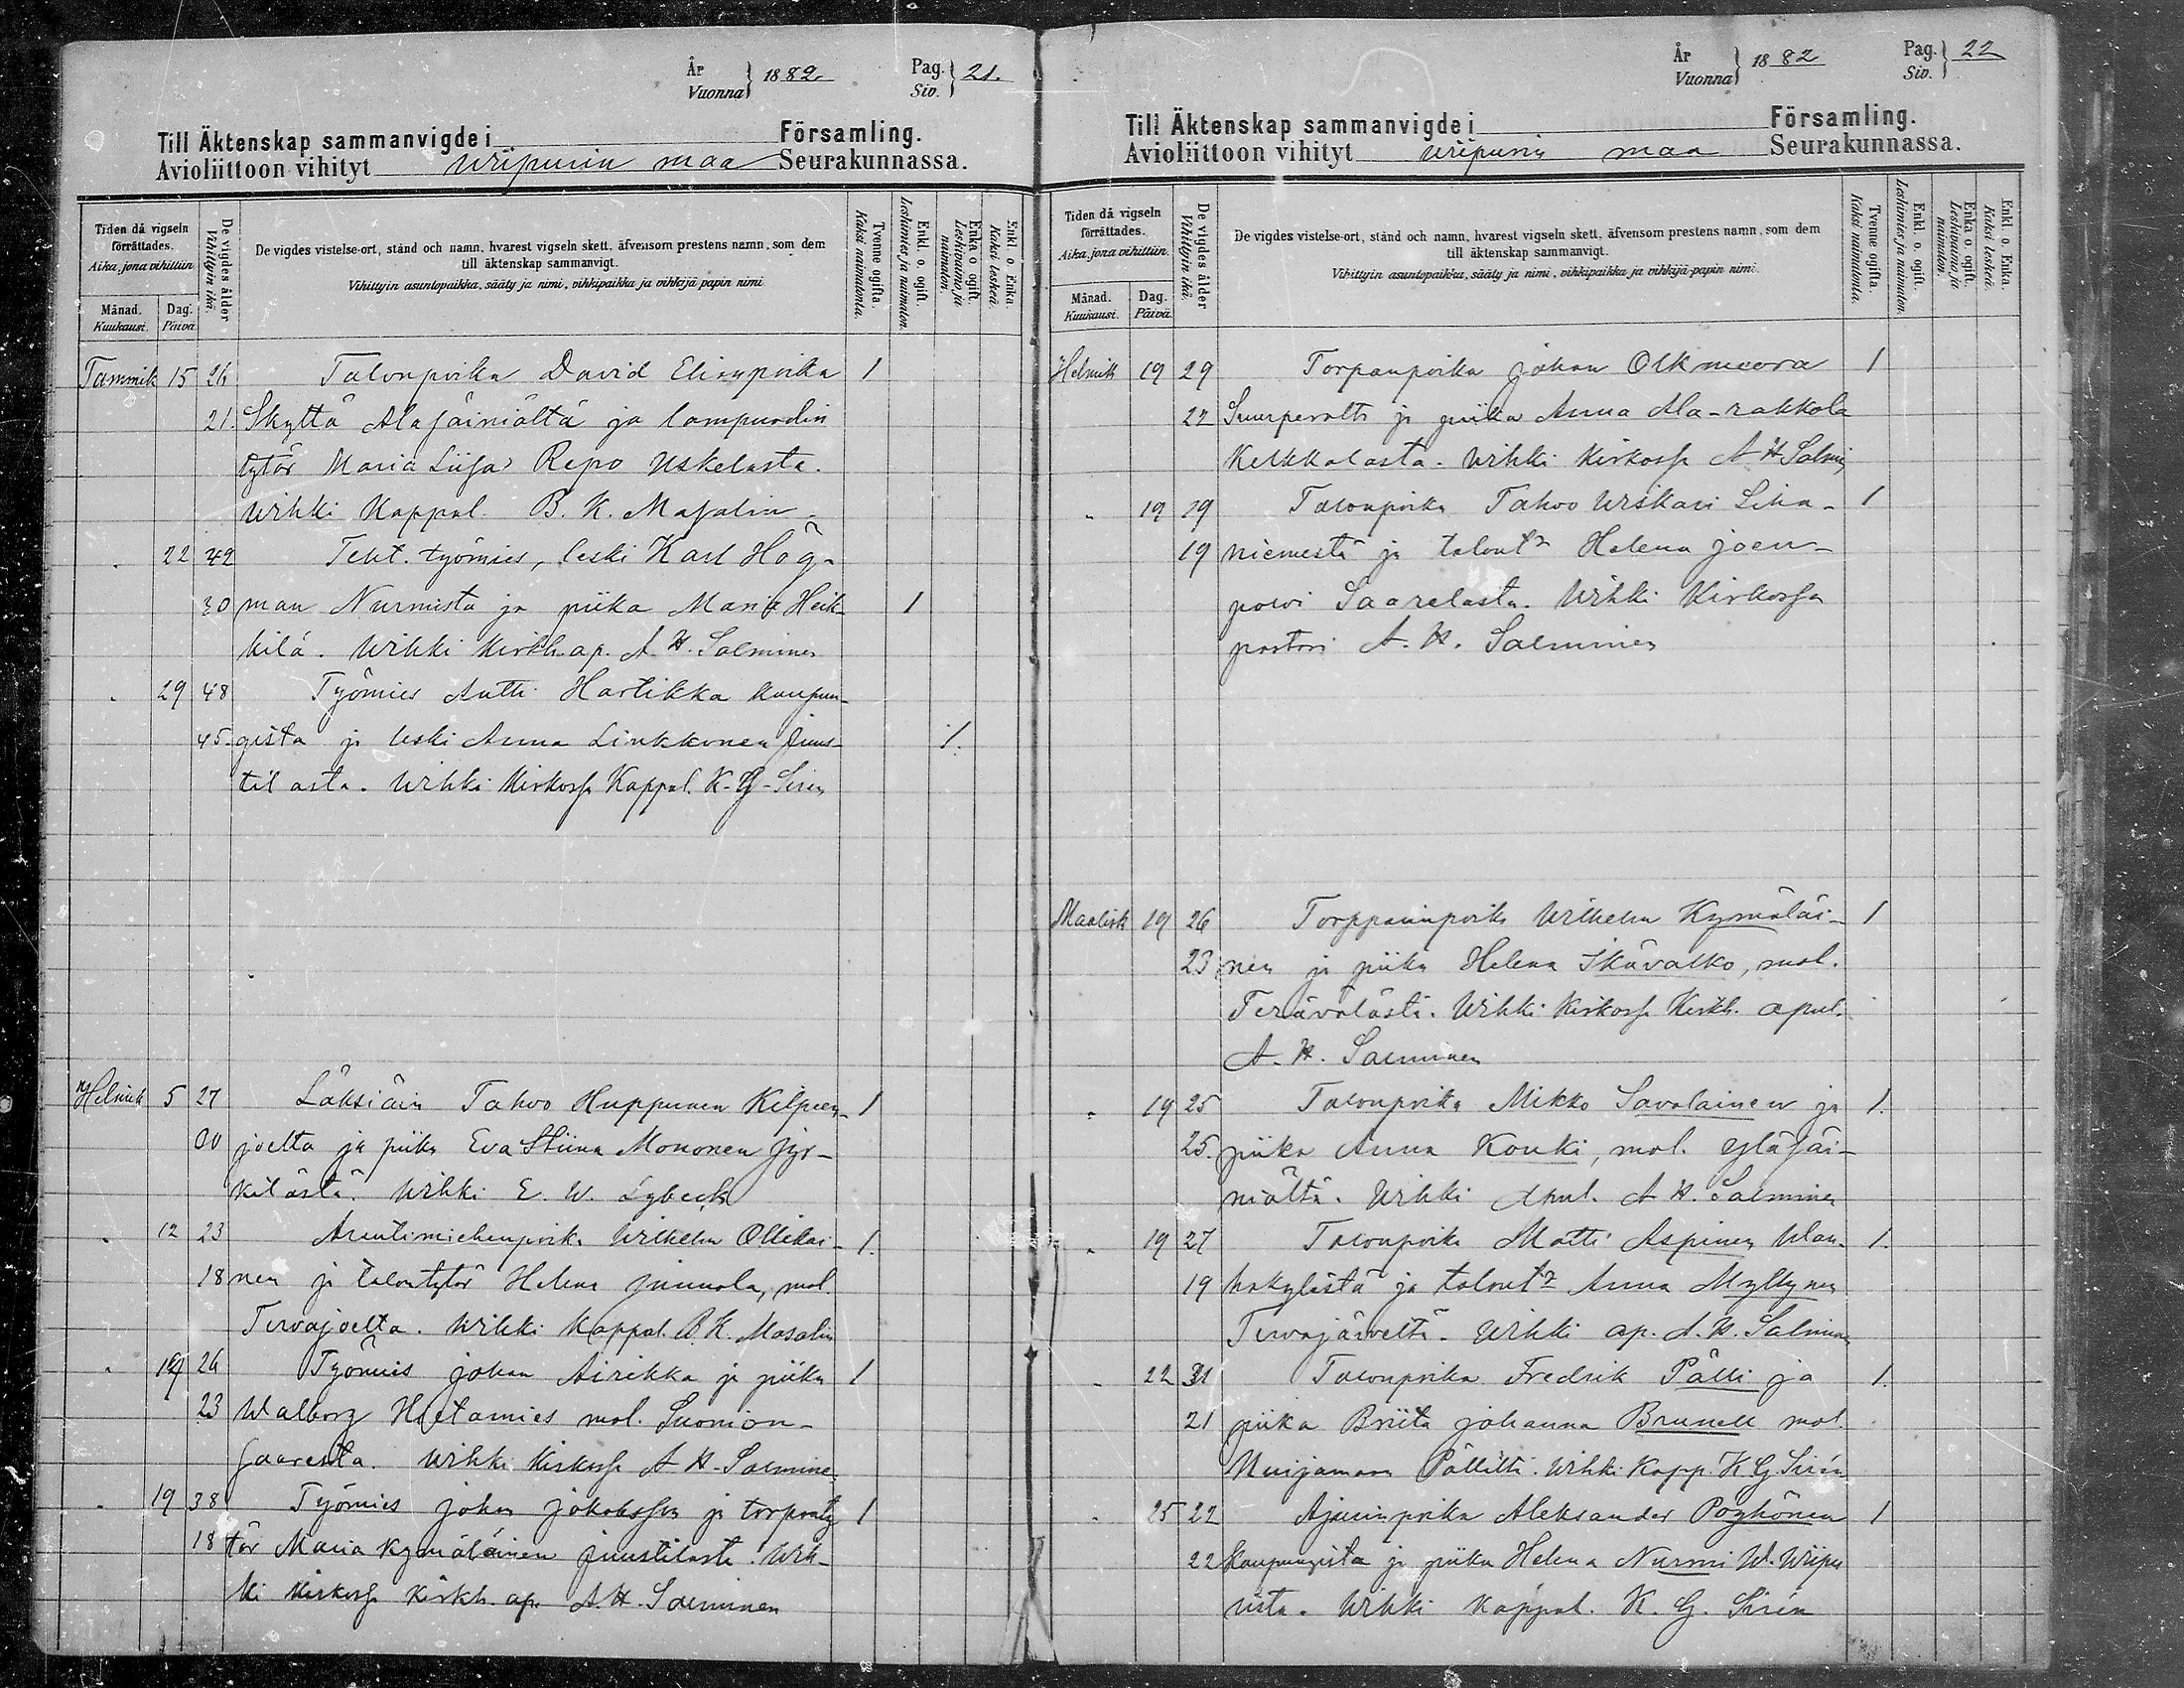 År
Vuonna } 1882.
Pag.
Siv. } 21.
Till Äktenskap sammanvigde i Församling.
Avioliittoon vihityt Wiipurin maa Seurakunnassa.
Tiden då vigseln förrättades.
Aika, jona vihittiin
Månad. Kuukausi.
Dag. Päivä.
De vigdes ålder Vihittyin ikä.
De vigdes vistelse-ort, stånd och namn, hvarest vigseln skett, äfvensom prestens namn, som dem
till äktenskap sammanvigt.
Vihittyin asuntopaikka, sääty ja nimi, vihkipaikka ja vihkijä papin nimi
Tvenne ogifta. Kaksi naimatonta.
Enkl. o. ogift. Leskimies ja naimaton.
Enka o. ogift. Leskivaimo ja naimaton.
Enkl. o. Enka. Kaksi leskeä.
Tammik 15 26 Talonpoika David Elianpoika 1
21. Skyttä Alasäiniältä ja lampuodin
tytär Maria Liisa Repo Uskelasta.
Wihki Kappal. B. K. Masalin.
" 22 42 Teht. työmies, leski Karl Hög-
30 man Nurmista ja piika Maria Heik- 1
kilä. Wihki Kirkh. ap. A. H. Salminen
" 29 48 Työmies Antti Hartikka kaupun-
45. gista ja leski Anna Linkkonen Juus- 1.
tilasta. Wihki Kirkossa Kappal. K. G. Siren
Helmik 5 27 Läksiäin Tahvo Huppunen Kilpeen- 1
joelta ja piika Eva Stiina Mononen Jyr-
kilästä. Wihki E. W. Lybeck
" 12 23 Wilhelm Ollikai- 1.
18 nen ja talontytär Helena Junnola, mol.
Tervajoelta. Wihki Kappal. B. K. Masalin
" 19 26 Työmies Johan Airikka ja piika 1
23 Walborg Hietamies mol. Suonion-
saaresta. Wihki Kirkossa A. H. Salminen
" 19 38 Työmies Johan Jakobsson ja torparity 1
18 tär Maria Kymäläinen Juustilasta. Wih-
ki Kirkossa Kirkh. ap. A. H. Salminen
År
Vuonna } 1882
Pag.
Siv. } 22
Till Äktenskap sammanvigde i Församling.
Avioliittoon vihityt Wiipurin maa Seurakunnassa.
Tiden då vigseln förrättades.
Aika, jona vihittiin.
Månad. Kuukausi.
Dag. Päivä.
De vigdes ålder Vihittyin ikä.
De vigdes vistelse-ort, stånd och namn, hvarest vigseln skett, äfvensom prestens namn, som dem
till äktenskap sammanvigt.
Vihittyin asuntopaikka, sääty ja nimi, vihkipaikka ja vihkijä-papin nimi.
Tvenne ogifta. Kaksi naimatonta.
Enkl. o. ogift. Leskimies ja naimaton.
Enka o. ogift. Leskivaimo ja naimaton.
Enkl. o. Enka. Kaksi leskeä.
Helmik 19 29 Torpanpoika Johan Olkinuora 1
22 Suurperolta ja piika Anna Ala-rakkola
Kelkkalasta. Wihki Kirkossa A H Salmin
" 19 19 Talonpoika Tahvo Wiskari Liha- 1
19 niemestä ja talontr Helena Joen-
polvi Saarelasta. Wihki Kirkossa
pastori A. H. Salminen
Maalisk 19 26 Torpparinpoika Wilhelm Kymäläi- 1
23 nen ja piika Helena Ikävalko, mol.
Terävälästä. Wihki Kirkossa Kirkh. apul.
A. H. Salminen
" 19 25 Talonpoika Mikko Savolainen ja 1.
25. piika Anna Kouki, mol. Yläsäi-
niältä. Wihki Apul. A H. Salminen
" 19 27 Talonpoika Matti Aspinen Wan- 1.
19 hakylästä ja talontr Anna Myllynen
Tervajärveltä. Wihki ap. A. H. Salminen
" 22 31 Talonpoika Fredrik Pälli ja 1.
21 piika Briita Johanna Brunell mol.
Nuijamaan Pälliltä. Wihki Kapp. K G. Sirén
" 25 22 Ajurinpoika Aleksander Pöyhönen 1
22 kaupungista ja piika Helena Nurmi W. Wiipu
rista. Wihki Kappal. K. G. Sirén